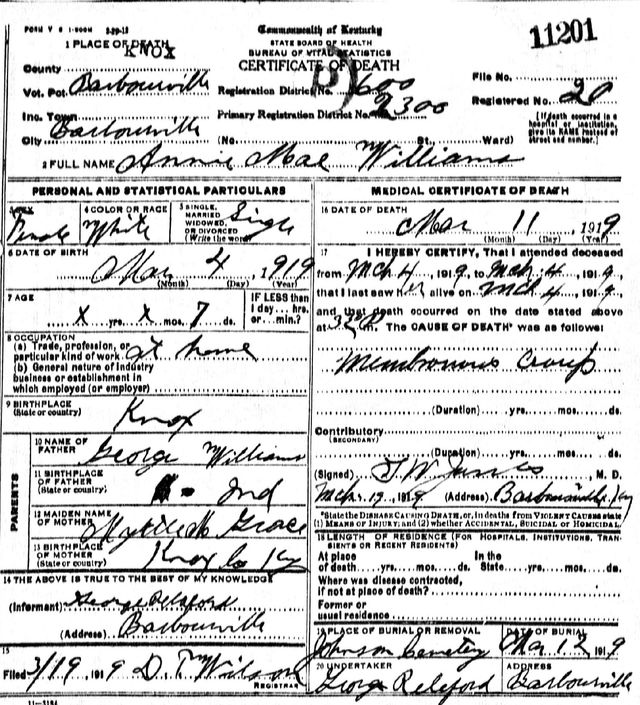 FORM V S 1-500M 3-29-13
Commonwealth of Kentucky
11201
1 PLACE OF DEATH
KNOX
STATE BOARD OF HEALTH
BUREAU OF VITAL STATISTICS
CERTIFICATE OF DEATH
County
Vot. Pct. Barbourville
Registration District No. 600
File No.
Inc. Town
Primary Registration District No. 2300
Registered No. 20
City Barbourville
(No. St. Ward)
[If death occurred in a
hospital or institution,
give its NAME instead of
street and number.]
2 FULL NAME Annie Mae Williams
PERSONAL AND STATISTICAL PARTICULARS
3 SEX
Female
4 COLOR OR RACE
White
5 SINGLE,
MARRIED
WIDOWED,
OR DIVORCED
(Write the word)
Single
6 DATE OF BIRTH
Mar 4, 1919
(Month) (Day) (Year)
7 AGE
x yrs. x mos. 7 ds.
IF LESS than
1 day... hrs.
or... min.?
8 OCCUPATION
(a) Trade, profession, or
particular kind of work at home
(b) General nature of industry
business or establishment in
which employed (or employer)
9 BIRTHPLACE
(State or country)
Knox
PARENTS
10 NAME OF
FATHER
George Williams
11 BIRTHPLACE
OF FATHER
(State or country)
Ind
12 MAIDEN NAME
OF MOTHER
Grace
13 BIRTHPLACE
OF MOTHER
(State or country)
Knox Co Ky
14 THE ABOVE IS TRUE TO THE BEST OF MY KNOWLEDGE
(Informant) George Releford
(Address) Barbourville
15
Filed 3/19, 1919 D. T. Wilson
REGISTRAR
11-3184
MEDICAL CERTIFICATE OF DEATH
16 DATE OF DEATH
Mar 11, 1919
(Month) (Day) (Year)
17 I HEREBY CERTIFY, That I attended deceased
from Mch 4, 1919, to Mch 4, 1919,
that I last saw her alive on Mch 4, 1919,
and that death occurred on the date stated above
at m. The CAUSE OF DEATH* was as follows:
Membranous Croup
(Duration) yrs. mos. ds.
Contributory
(SECONDARY)
(Duration) yrs. mos. ds.
(Signed) M. D.
Mch 19, 1919 (Address) Barbourville Ky
*State the DISEASE CAUSING DEATH, or, in deaths from VIOLENT CAUSES state
(1) MEANS OF INJURY; and (2) whether ACCIDENTAL, SUICIDAL or HOMICIDAL.
18 LENGTH OF RESIDENCE (FOR HOSPITALS, INSTITUTIONS, TRANSIENTS OR RECENT RESIDENTS)
At place
of death yrs. mos. ds.
In the
State yrs. mos. ds.
Where was disease contracted,
if not at place of death?
Former or
usual residence
19 PLACE OF BURIAL OR REMOVAL
Johnson Cemetery
DATE OF BURIAL
Mar 12, 1919
20 UNDERTAKER
George Releford
ADDRESS
Barbourville